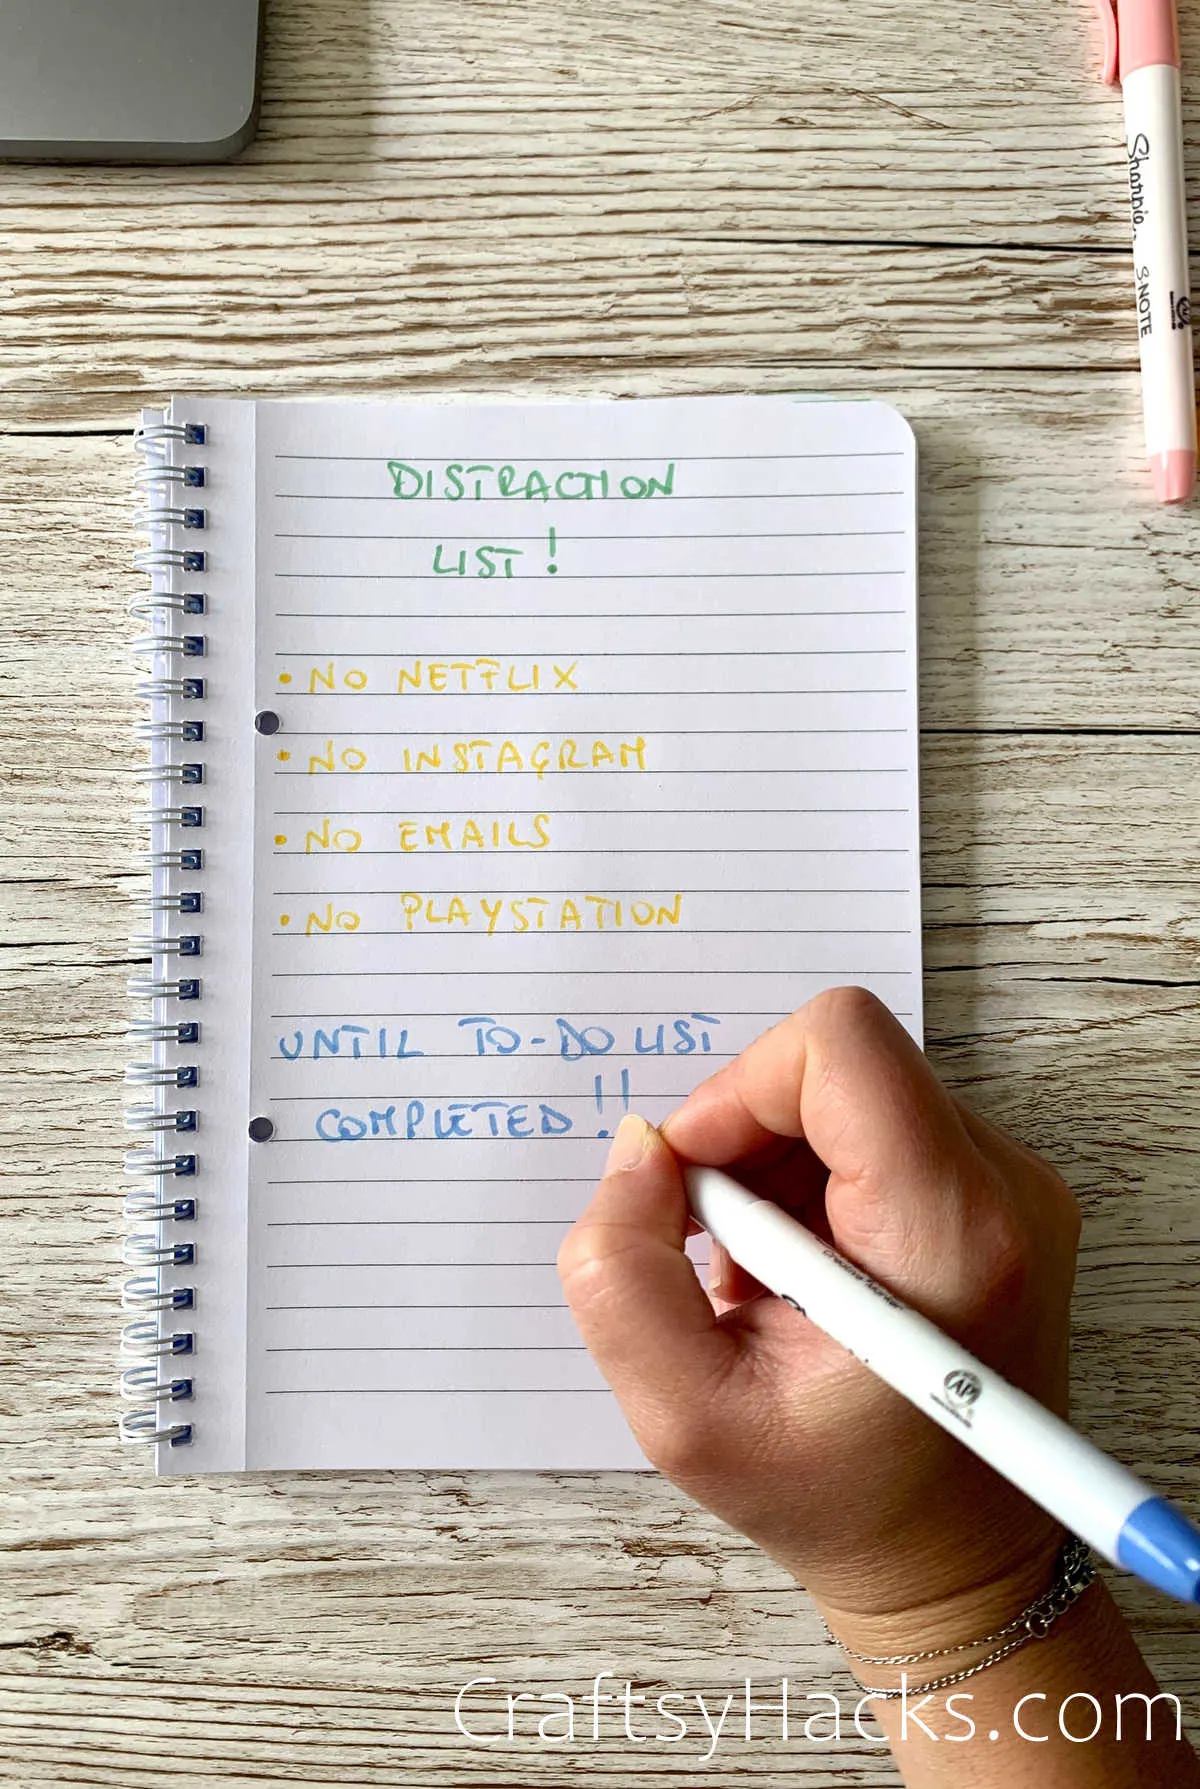 DISTRACTION
LIST!
• NO NETFLIX
• NO INSTAGRAM
• NO EMAILS
• NO PLAYSTATION
UNTIL TO-DO LIST
COMPLETED!!
Sharpie S·NOTE
Creative Marker
AP
CraftsyHacks.com